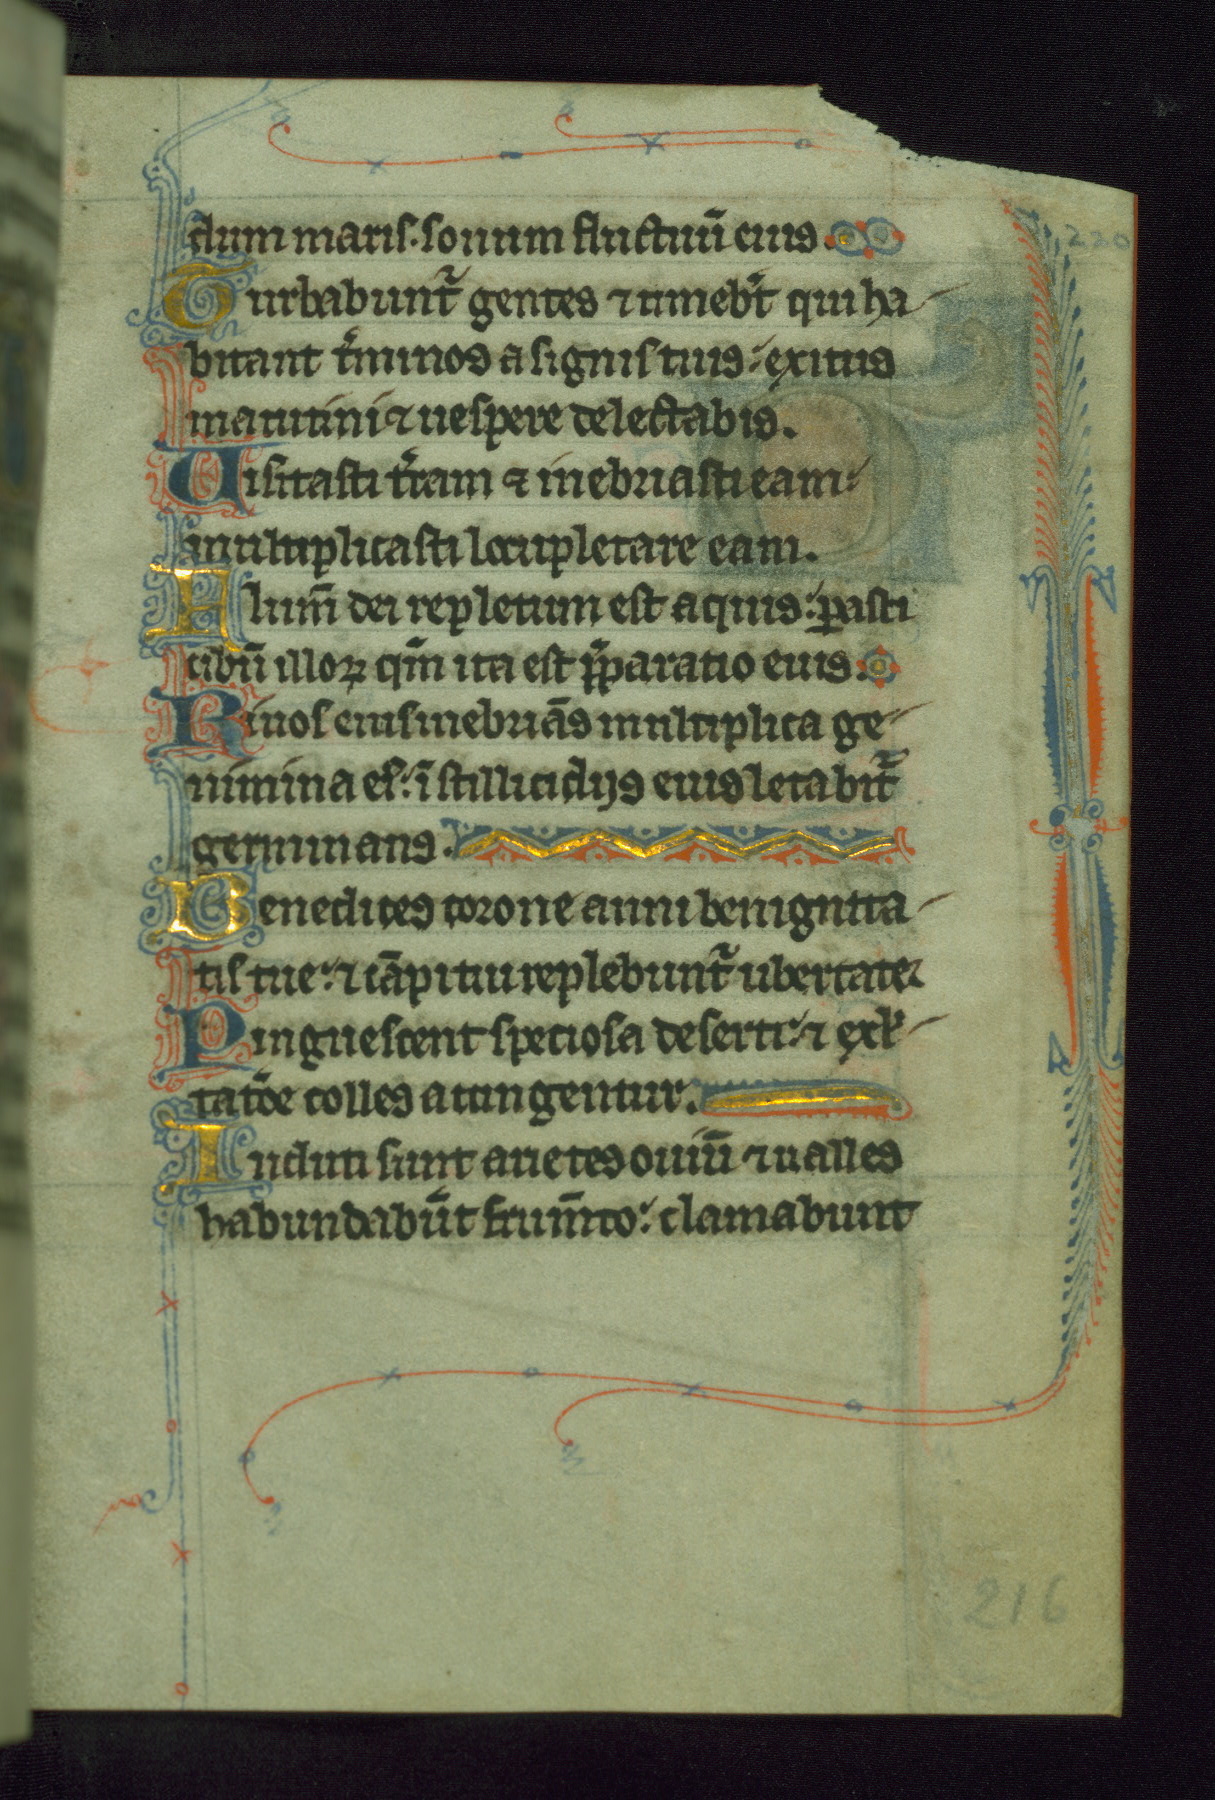 dum maris. sonum fluctuū eius.
Turbabunt᷑ gentes ⁊ timebt̄ qui ha
bitant t̄minos a signis tuis: exitus
matutini ⁊ uespere delectabis.
Uisitasti t̄ram ⁊ inebriasti eam:
multiplicasti locupletare eam.
Flum̄ dei repletum est aquis: ꝑasti
cibū illoꝝ qm̄ ita est p̄paratio eius.
Riuos eius inebriās multiplica ge
nimina ei᷒: ī stillicidijs eius letabit᷑
germinans.
Benedices corone anni benignita
tis tue: ⁊ cāpi tui replebunt᷑ ubertate
Pinguescent speciosa deserti: ⁊ exl̄
tatōe colles accingentur.
Induti sunt arietes ouiū ⁊ ualles
habundabūt frum̄to: clamabunt
220
216